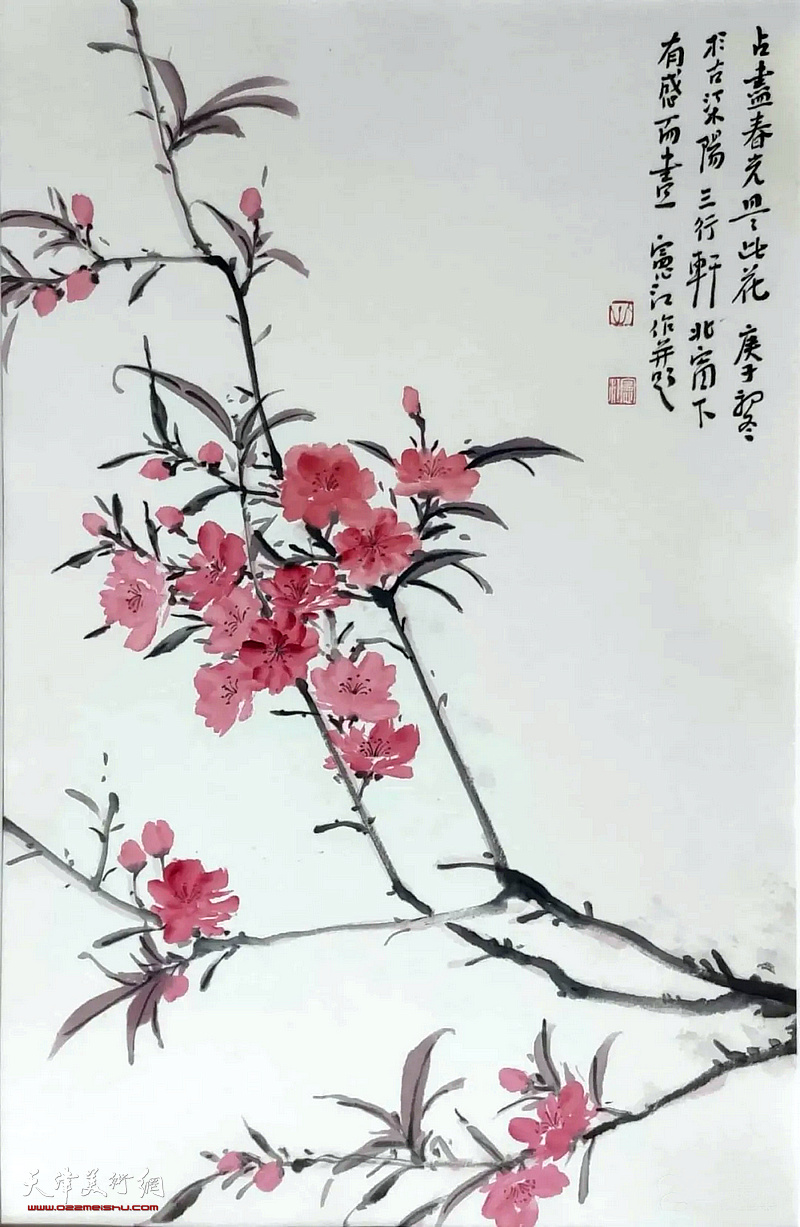 占盡春光是此花 庚子初冬
於古渠陽三行軒北窗下
有感而畫 憲江作并題
天津美術網
www.022meishu.com